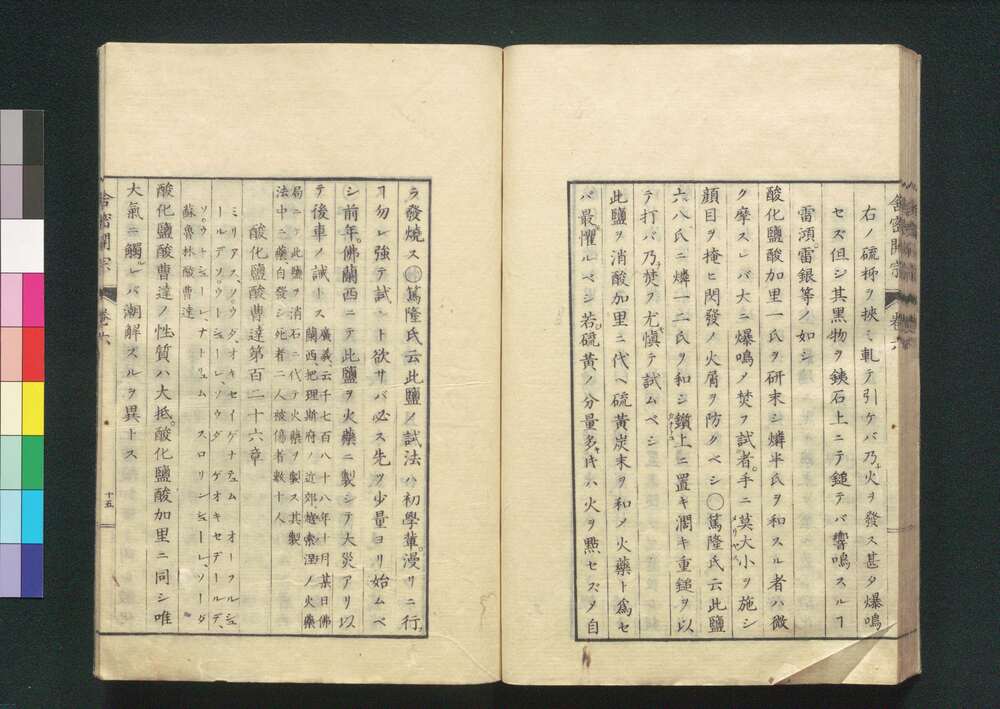 右ノ硫柹ヲ挾ミ軋テ引ケバ乃火ヲ發ス甚タ爆鳴
セズ但シ其黒物ヲ鐵石上ニテ鎚テバ響鳴スルヿ
雷澒雷銀等ノ如シ
酸化鹽酸加里一氏ヲ研末シ燐半氏ヲ和スル者ハ微
ク摩スレバ大ニ爆鳴ノ焚フ試者手ニ莫大小ヲ施シ
顔目ヲ掩ヒ閃發ノ火屑ヲ防グベシ○篤隆氏云此鹽
六八氏ニ燐一二氏ヲ和シ鑽上ニ置キ濶キ重鎚ヲ以
テ打バ乃焚フ尤愼テ試ムベシ
此鹽ヲ消酸加里ニ代ヘ硫黄炭末ヲ和メ火藥ト爲セ
バ最懼ルベシ若硫黄ノ分量多キハ火ヲ點セズタ自
舎密開宗 卷六
ラ發燒ス○篤隆氏云此鹽ノ試法ハ初學輩漫リニ行
ヿ勿レ強テ試ント欲サバ必ス先ツ少量ヨリ始ムベ
シ前年佛蘭西ニテ此鹽ヲ火藥ニ製シテ大災アリ以
テ後車ノ誡トス 廣義云千七百八十八年十月某日佛
蘭西把理斯府ノ近郊越索涅ノ火藥
局ニテ此鹽ヲ消石ニ代ヘ火藥ヲ製ス其製
法中ニ藥自發シ死者二人被傷者數十人
酸化鹽酸曹達第百二十六章
ミリアス、ソウダ、オキセイゲナテュム オーフルシュ
ールデソウーシューレ、ソウダ ゲオキセデールデ、
ソウトシューレ、ナトリュム スロリンシューレ、ソーダ
蘇魯林酸曹達
酸化鹽酸曹達ノ性質ハ大抵酸化鹽酸加里ニ同シ唯
大氣ニ觸レバ潮解スルヲ異トス
舎密開宗 卷六
十五